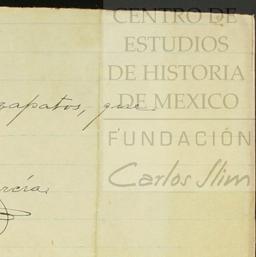 CENTRO DE
ESTUDIOS
DE HISTORIA
DE MEXICO
zapatos, que
FUNDACIÓN
Carlos Slim